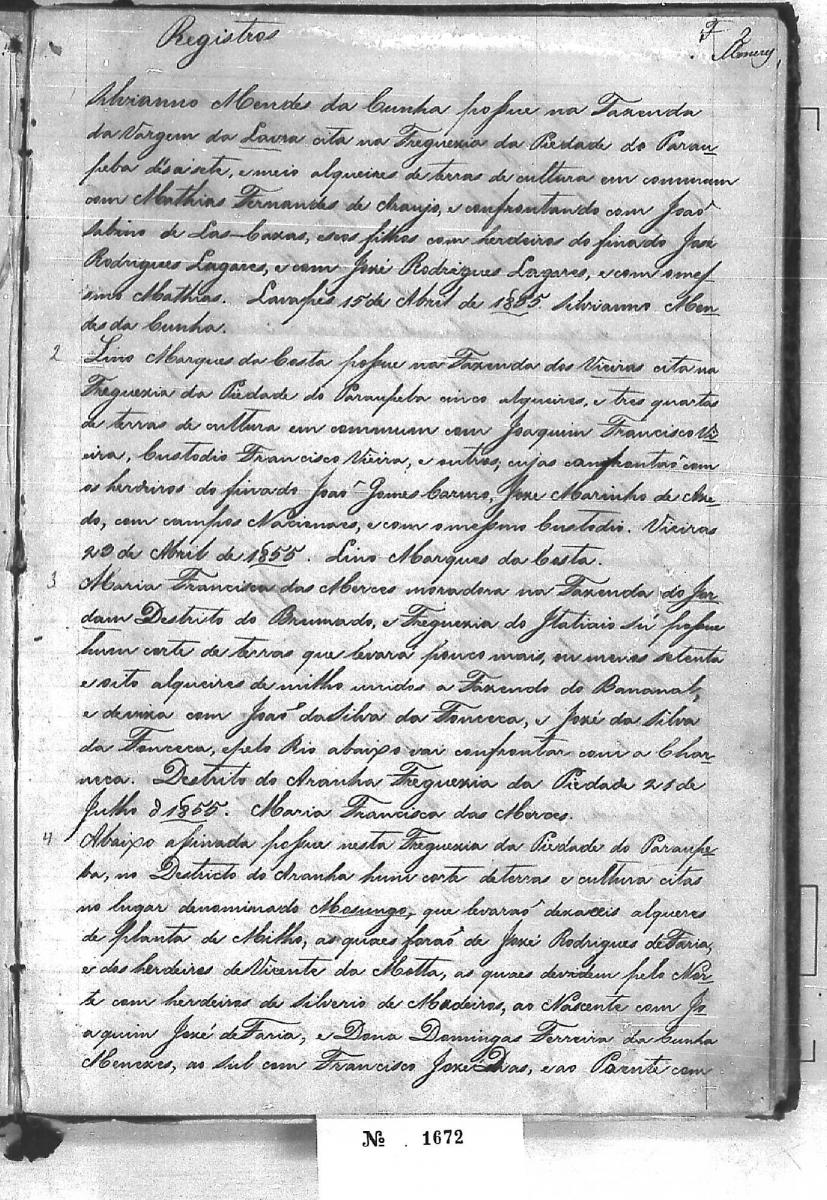 Registros
F 2
Silvianno Mendes da Cunha possue na Fazenda
da Vargem da Lavra cita na Freguezia da Piedade do Parau-
peba desaisete, e meio alqueires de terras de cultura em commum
com Mathias Fernandes de Araujo, e confrontando com Joaõ
Sabino de Las-Cazas, e seos filhos com herdeiros do finado José
Rodrigues Lagares, e com José Rodrigues Lagares, e com o mes
smo Mathias. Lavapés 15 de Abril de 1855. Silvianno Men-
des da Cunha.
2 Lino Marques da Costa possue na Fazenda dos Vieiras cita na
Freguezia da Piedade do Paraupeba cinco alqueires, e tres quartas
de terras de cultura em commum com Joaquim Francisco Vi-
eira, Custodio Francisco Vieira, e outros, cujas confrontaõ com
os herdeiros do finado Joaõ Gomes Carmo, Joze Marinho de Aze-
do, com campos Nacionaes, e com o mesmo Custodio. Vieiras
29 de Abril de 1855. Lino Marques da Costa.
3 Maria Francisca das Merces moradora na Fazenda do Jor-
dam Destrito do Brumado, e Freguezia do Itatiaio Sú possue
hum corte de terras que levará pouco mais, ou menos setenta
e oito alqueires de milho unidos a Fazendo do Bananal,
e deviza com Joaõ da Silva da Fonceca, e Jozé da Silva
da Fonceca, e pelo Rio abaixo vai confrontar com a Char-
neca. Destrito do Aranha Freguezia da Piedade 21 de
Julho d 1855. Maria Francisca das Merces.
4 Abaixo asinada possue nesta Freguezia da Piedade do Paraupe-
ba, no Destricto do Aranha hum corte de terras e cultura citas
no lugar denominado Mosungo, que levaraõ dezaceis alqueres
de planta de Milho, as quaes foraõ de Jozé Rodrigues de Faria,
e dos herdeiros de Vicente da Motta, as quaes devidem pelo Nor-
te com herdeiros de Silverio de Madeiros, ao Nascente com Jo
aquim Jozé de Faria, e Dona Domingas Ferreira da Cunha
Menezes, ao Sul com Francisco Joze Dias, e ao Poente com
Nº 1672